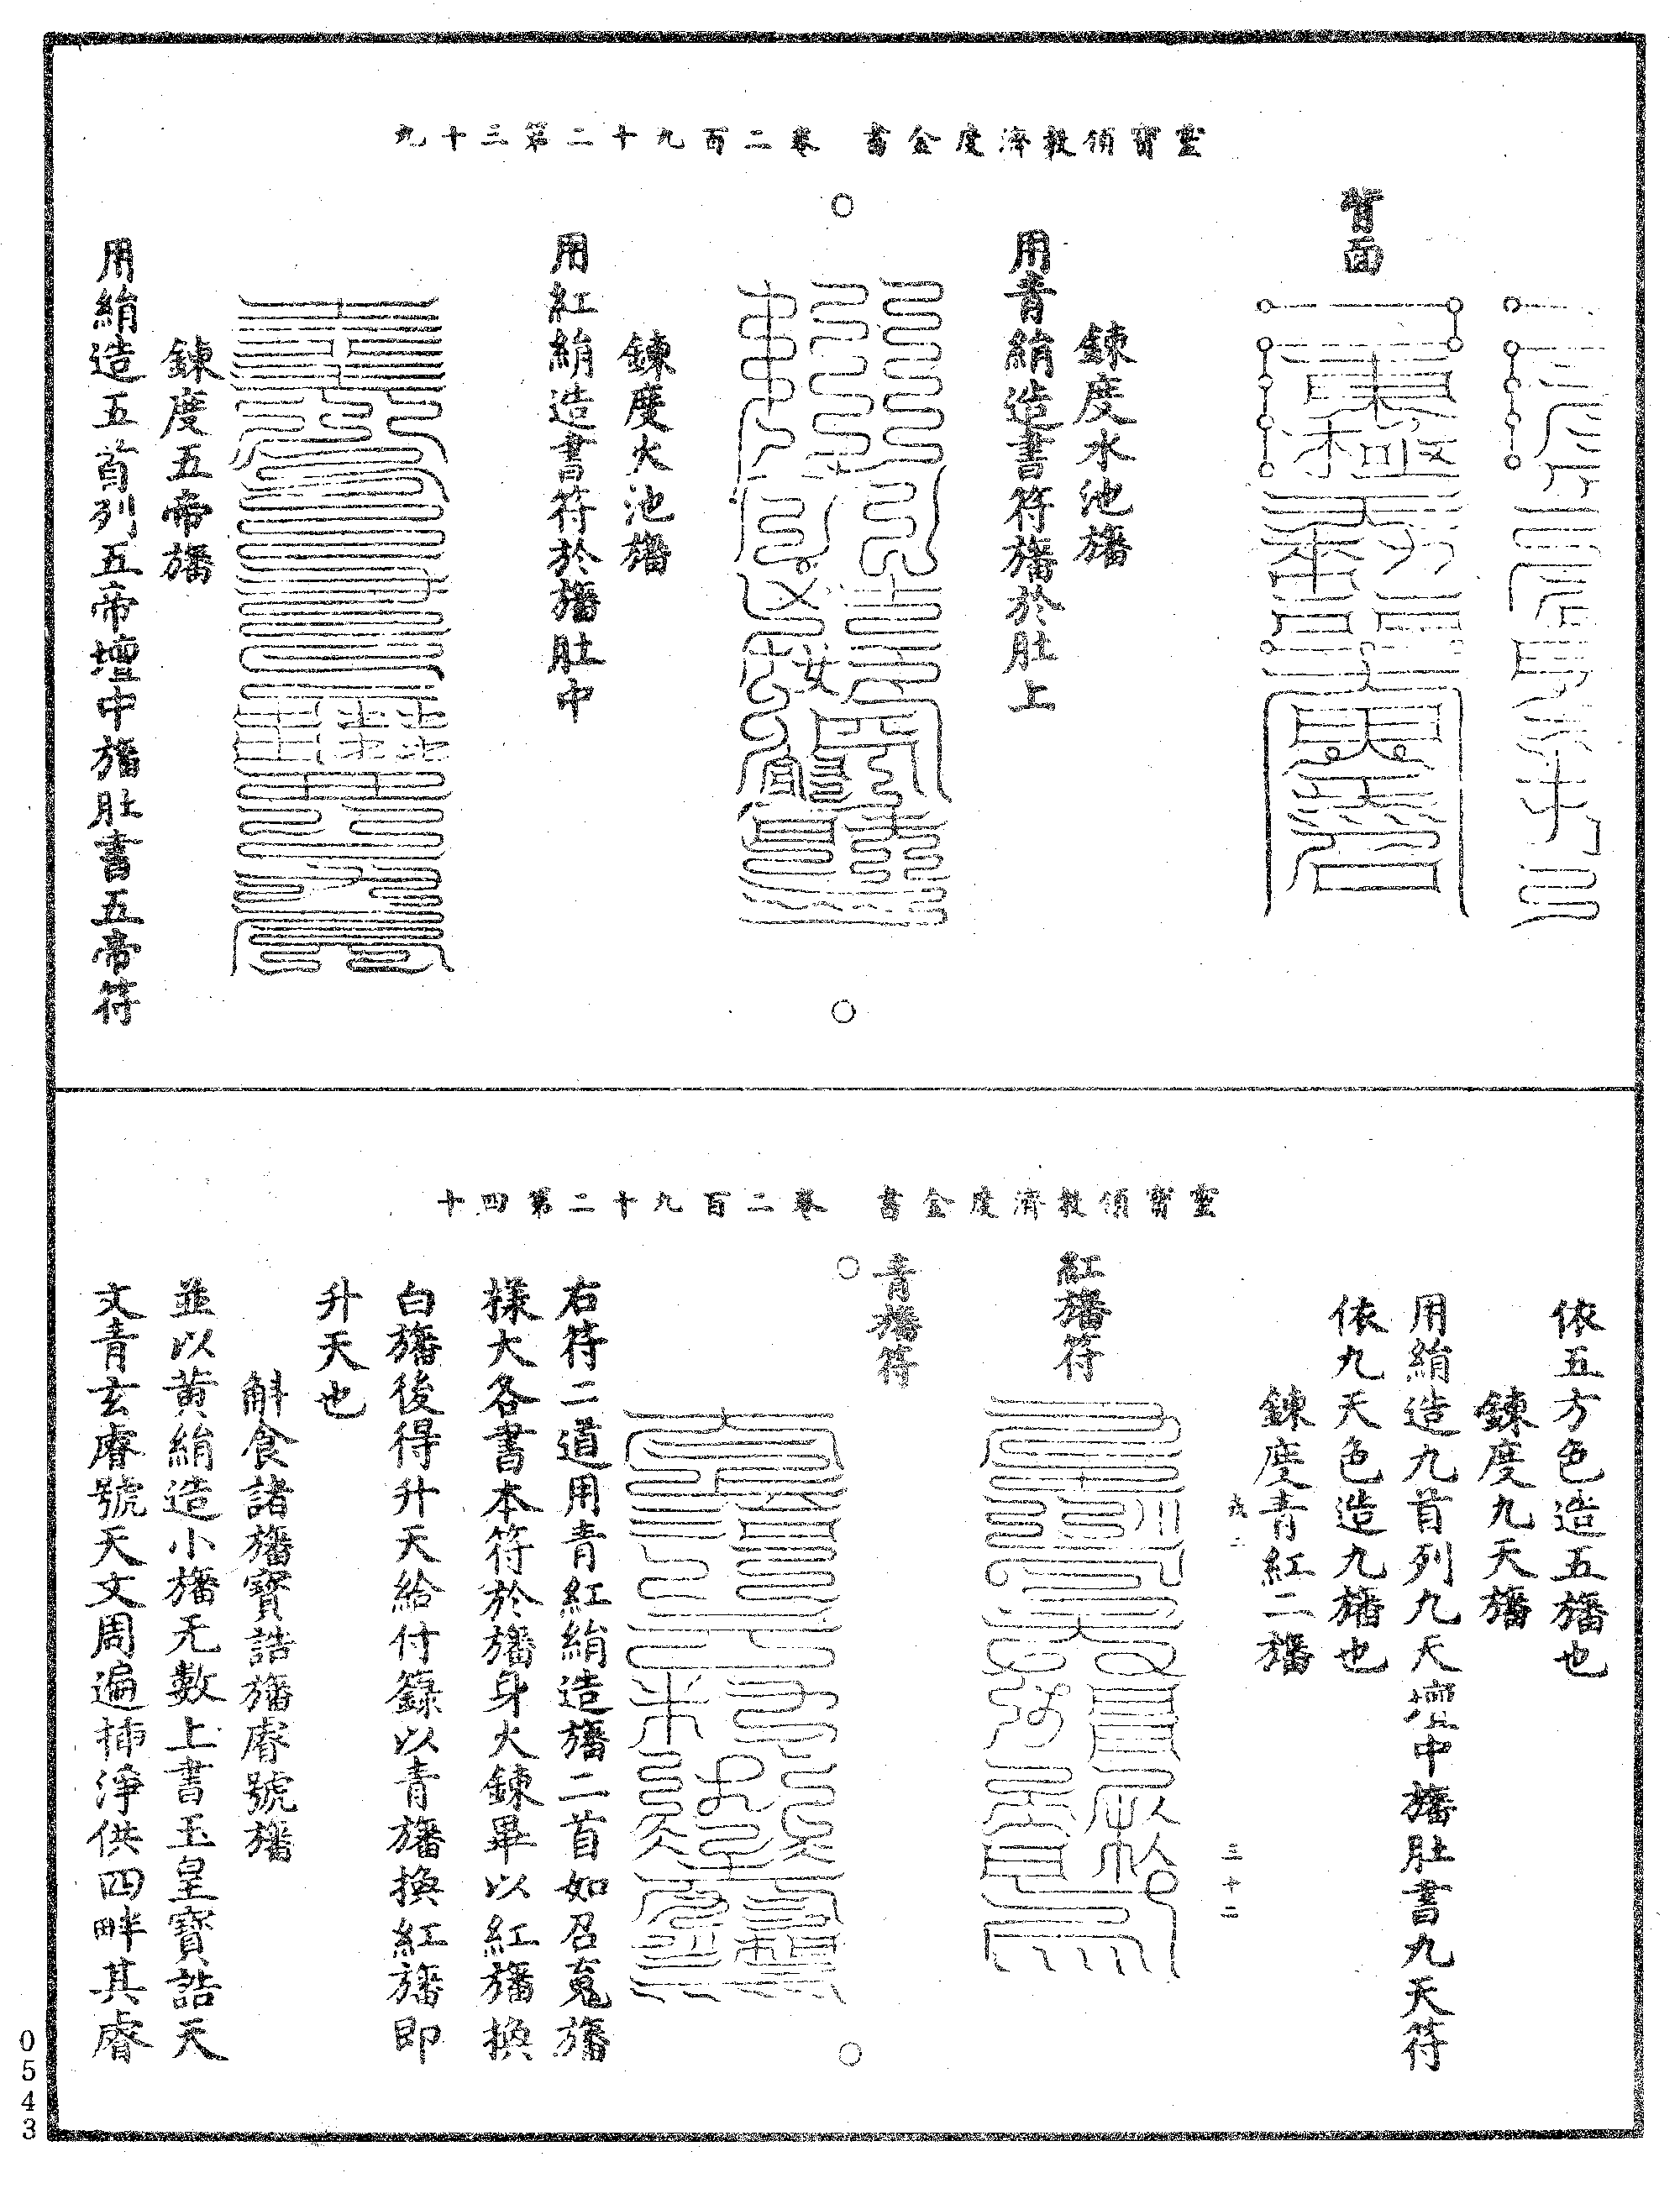 靈寶領教濟度金書　卷二百九十二第三十九
背面
鍊度水池旛
用青絹造書符旛於肚上
鍊度火池旛
用紅絹造書符於旛肚中
鍊度五帝旛
用絹造五首列五帝壇中旛肚書五帝符
靈寶領教濟度金書　卷二百九十二第四十
依五方色造五旛也
鍊度九天旛
用絹造九首列九天壇中旛肚書九天符
依九天色造九旛也
鍊度青紅二旛
三十二
紅旛符
青旛符
右符二道用青紅絹造旛二首如召䰟旛
樣大各書本符於旛身火鍊畢以紅旛換
白旛後得升天給付籙以青旛換紅旛即
升天也
斛食諸旛寶誥旛睿號旛
並以黃絹造小旛无數上書玉皇寶誥天
文青玄睿號天文周遍揷淨供四畔其睿
0543